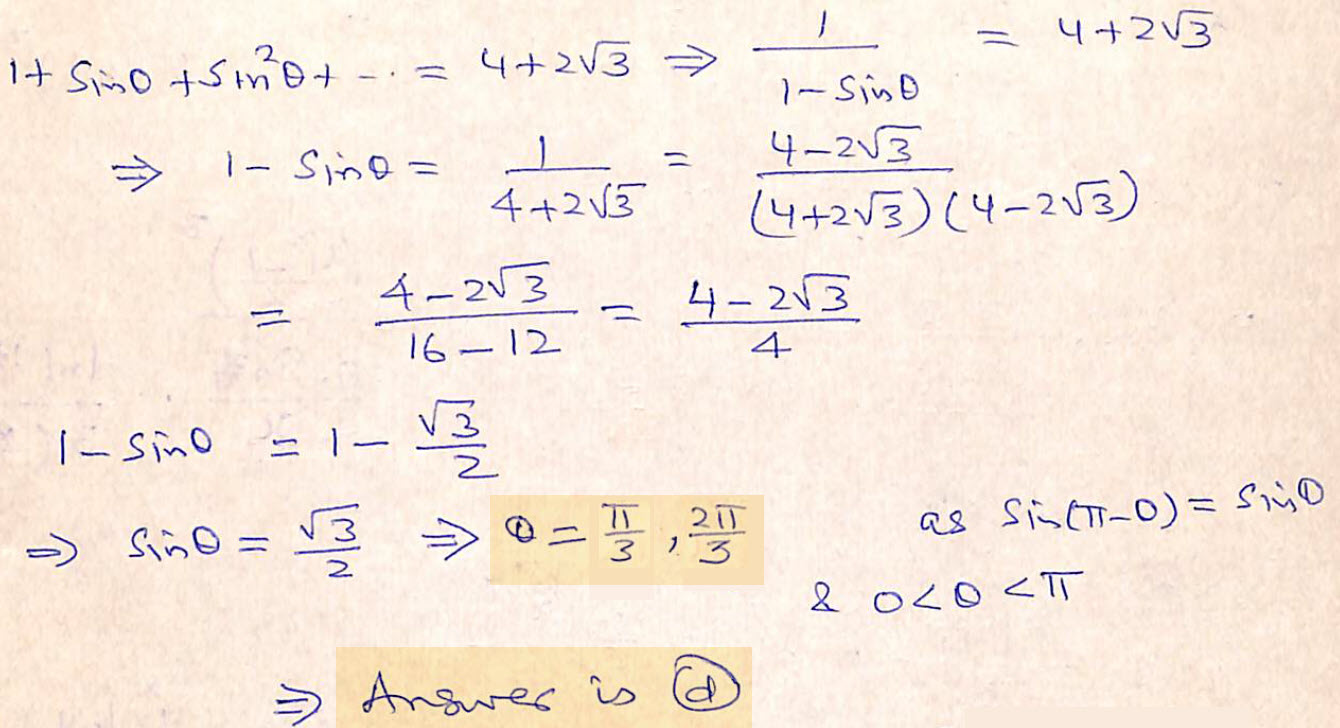 1+ Sinθ + Sin²θ + -.. = 4+2√3 ⇒ 1/(1-Sinθ) = 4+2√3
⇒ 1- Sinθ = 1/(4+2√3) = (4-2√3)/((4+2√3)(4-2√3))
= (4-2√3)/(16-12) = (4-2√3)/4
1-Sinθ = 1- √3/2
⇒ Sinθ = √3/2 ⇒ θ = π/3, 2π/3 as Sin(π-θ) = Sinθ
& 0<θ<π
⇒ Answer is ⓓ